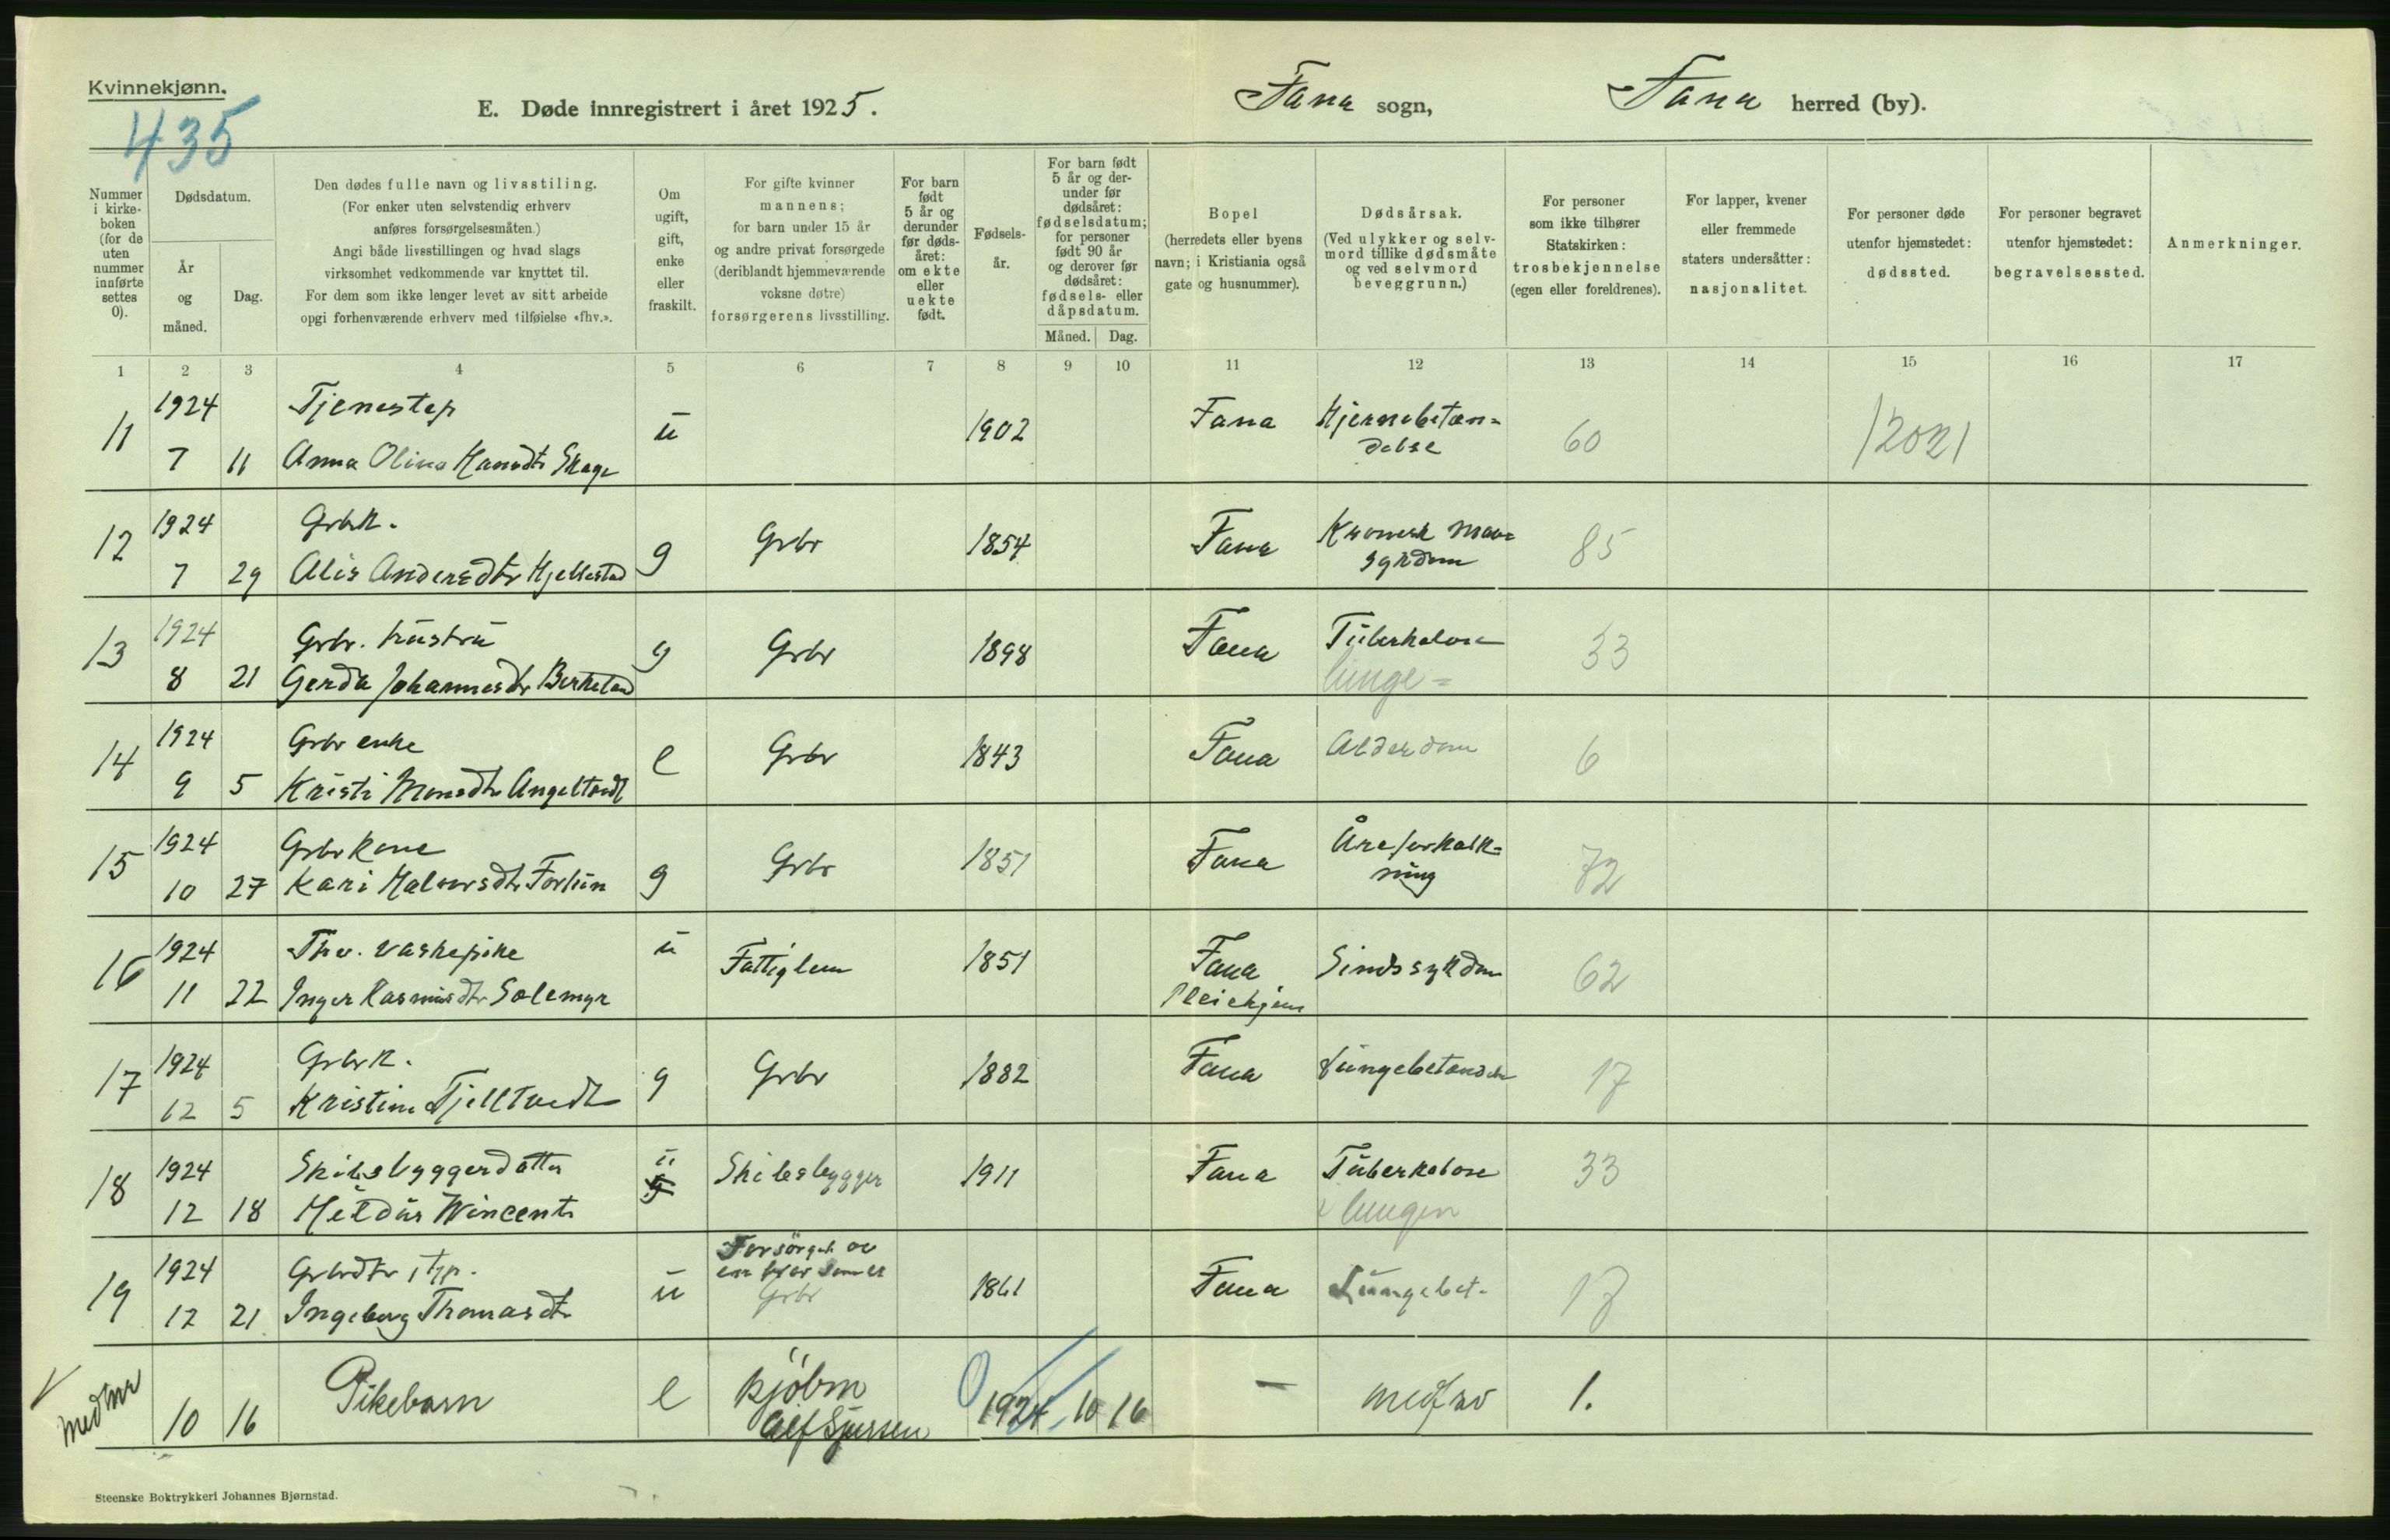 Kvinnekjønn.
435
E. Døde innregistrert i året 1925.
Fana sogn,
Fana herred (by).
Nummer i kirke- boken (for de uten nummer innførte settes 0).
Dødsdatum.
År og måned.
Dag.
Den dødes fulle navn og livsstiling.
(For enker uten selvstendig erhverv
anføres forsørgelsesmåten.)
Angi både livsstillingen og hvad slags
virksomhet vedkommende var knyttet til.
For dem som ikke lenger levet av sitt arbeide
opgi forhenværende erhverv med tilføielse «fhv.».
Om ugift, gift, enke eller fraskilt.
For gifte kvinner
mannens;
for barn under 15 år
og andre privat forsørgede
(deriblandt hjemmeværende
voksne døtre)
forsørgerens livsstilling.
For barn født 5 år og derunder før døds- året: om ekte eller uekte født.
Fødsels- år.
For barn født 5 år og der- under før dødsåret: fødselsdatum; for personer født 90 år og derover før dødsåret: fødsels- eller dåpsdatum.
Måned. Dag.
Bopel
(herredets eller byens
navn; i Kristiania også
gate og husnummer).
Dødsårsak.
(Ved ulykker og selv-
mord tillike dødsmåte
og ved selvmord
beveggrunn.)
For personer
som ikke tilhører
Statskirken:
trosbekjennelse
(egen eller foreldrenes).
For lapper, kvener
eller fremmede
staters undersåtter:
nasjonalitet.
For personer døde
utenfor hjemstedet:
dødssted.
For personer begravet
utenfor hjemstedet:
begravelsessted.
Anmerkninger.
1 2 3 4 5 6 7 8 9 10 11 12 13 14 15 16 17
1924 Tjenestep
11 ü 1902 Fana Hjernebetæn= delse 60 12021
7 11 Anna Olina Hansdtr Skage
1924 Grbk.
12 g Grbr 1854 Fana Kronisk mave sykdom 85
7 29 Alis Andersdtr Hjellestad
1924 Grbr. hüstrü
13 g Grbr 1898 Fana Tüberkulose lunge= 33
8 21 Gerda Johannesdtr Birkeland
1924 Grbr enke
14 e Grbr 1843 Fana Alderdom 6
9 5 Kristi Monsdtr Angeltvedt
1924 Grbr kone
15 g Grbr 1851 Fana Åreforkalk= ning 72
10 27 Kari Halvorsdtr Fortün
1924 Fhv. vaskepike
16 ü Fattiglem 1851 Fana Pleiehjem Sindssykdom 62
11 22 Inger Rasmüsdtr Solemyr
1924 Grbrk.
17 g Grbr 1882 Fana Lüngebetændelse 17
12 5 Kristine Fjelltvedt
1924 Skibsbyggerdatter
18 ü Skibsbygger 1911 Fana Tüberkulose i lungen 33
12 18 Wincent
1924 Grbrdtr
19 ü Forsörget av en bror som er Grbr 1861 Fana Lüngebet. 17
12 21 Ingeborg Thomasdtr
Pikebarn
10 16 e Alf Sjursen 0 1924 10 16 — medfsv 1.
Steenske Boktrykkeri Johannes Bjørnstad.